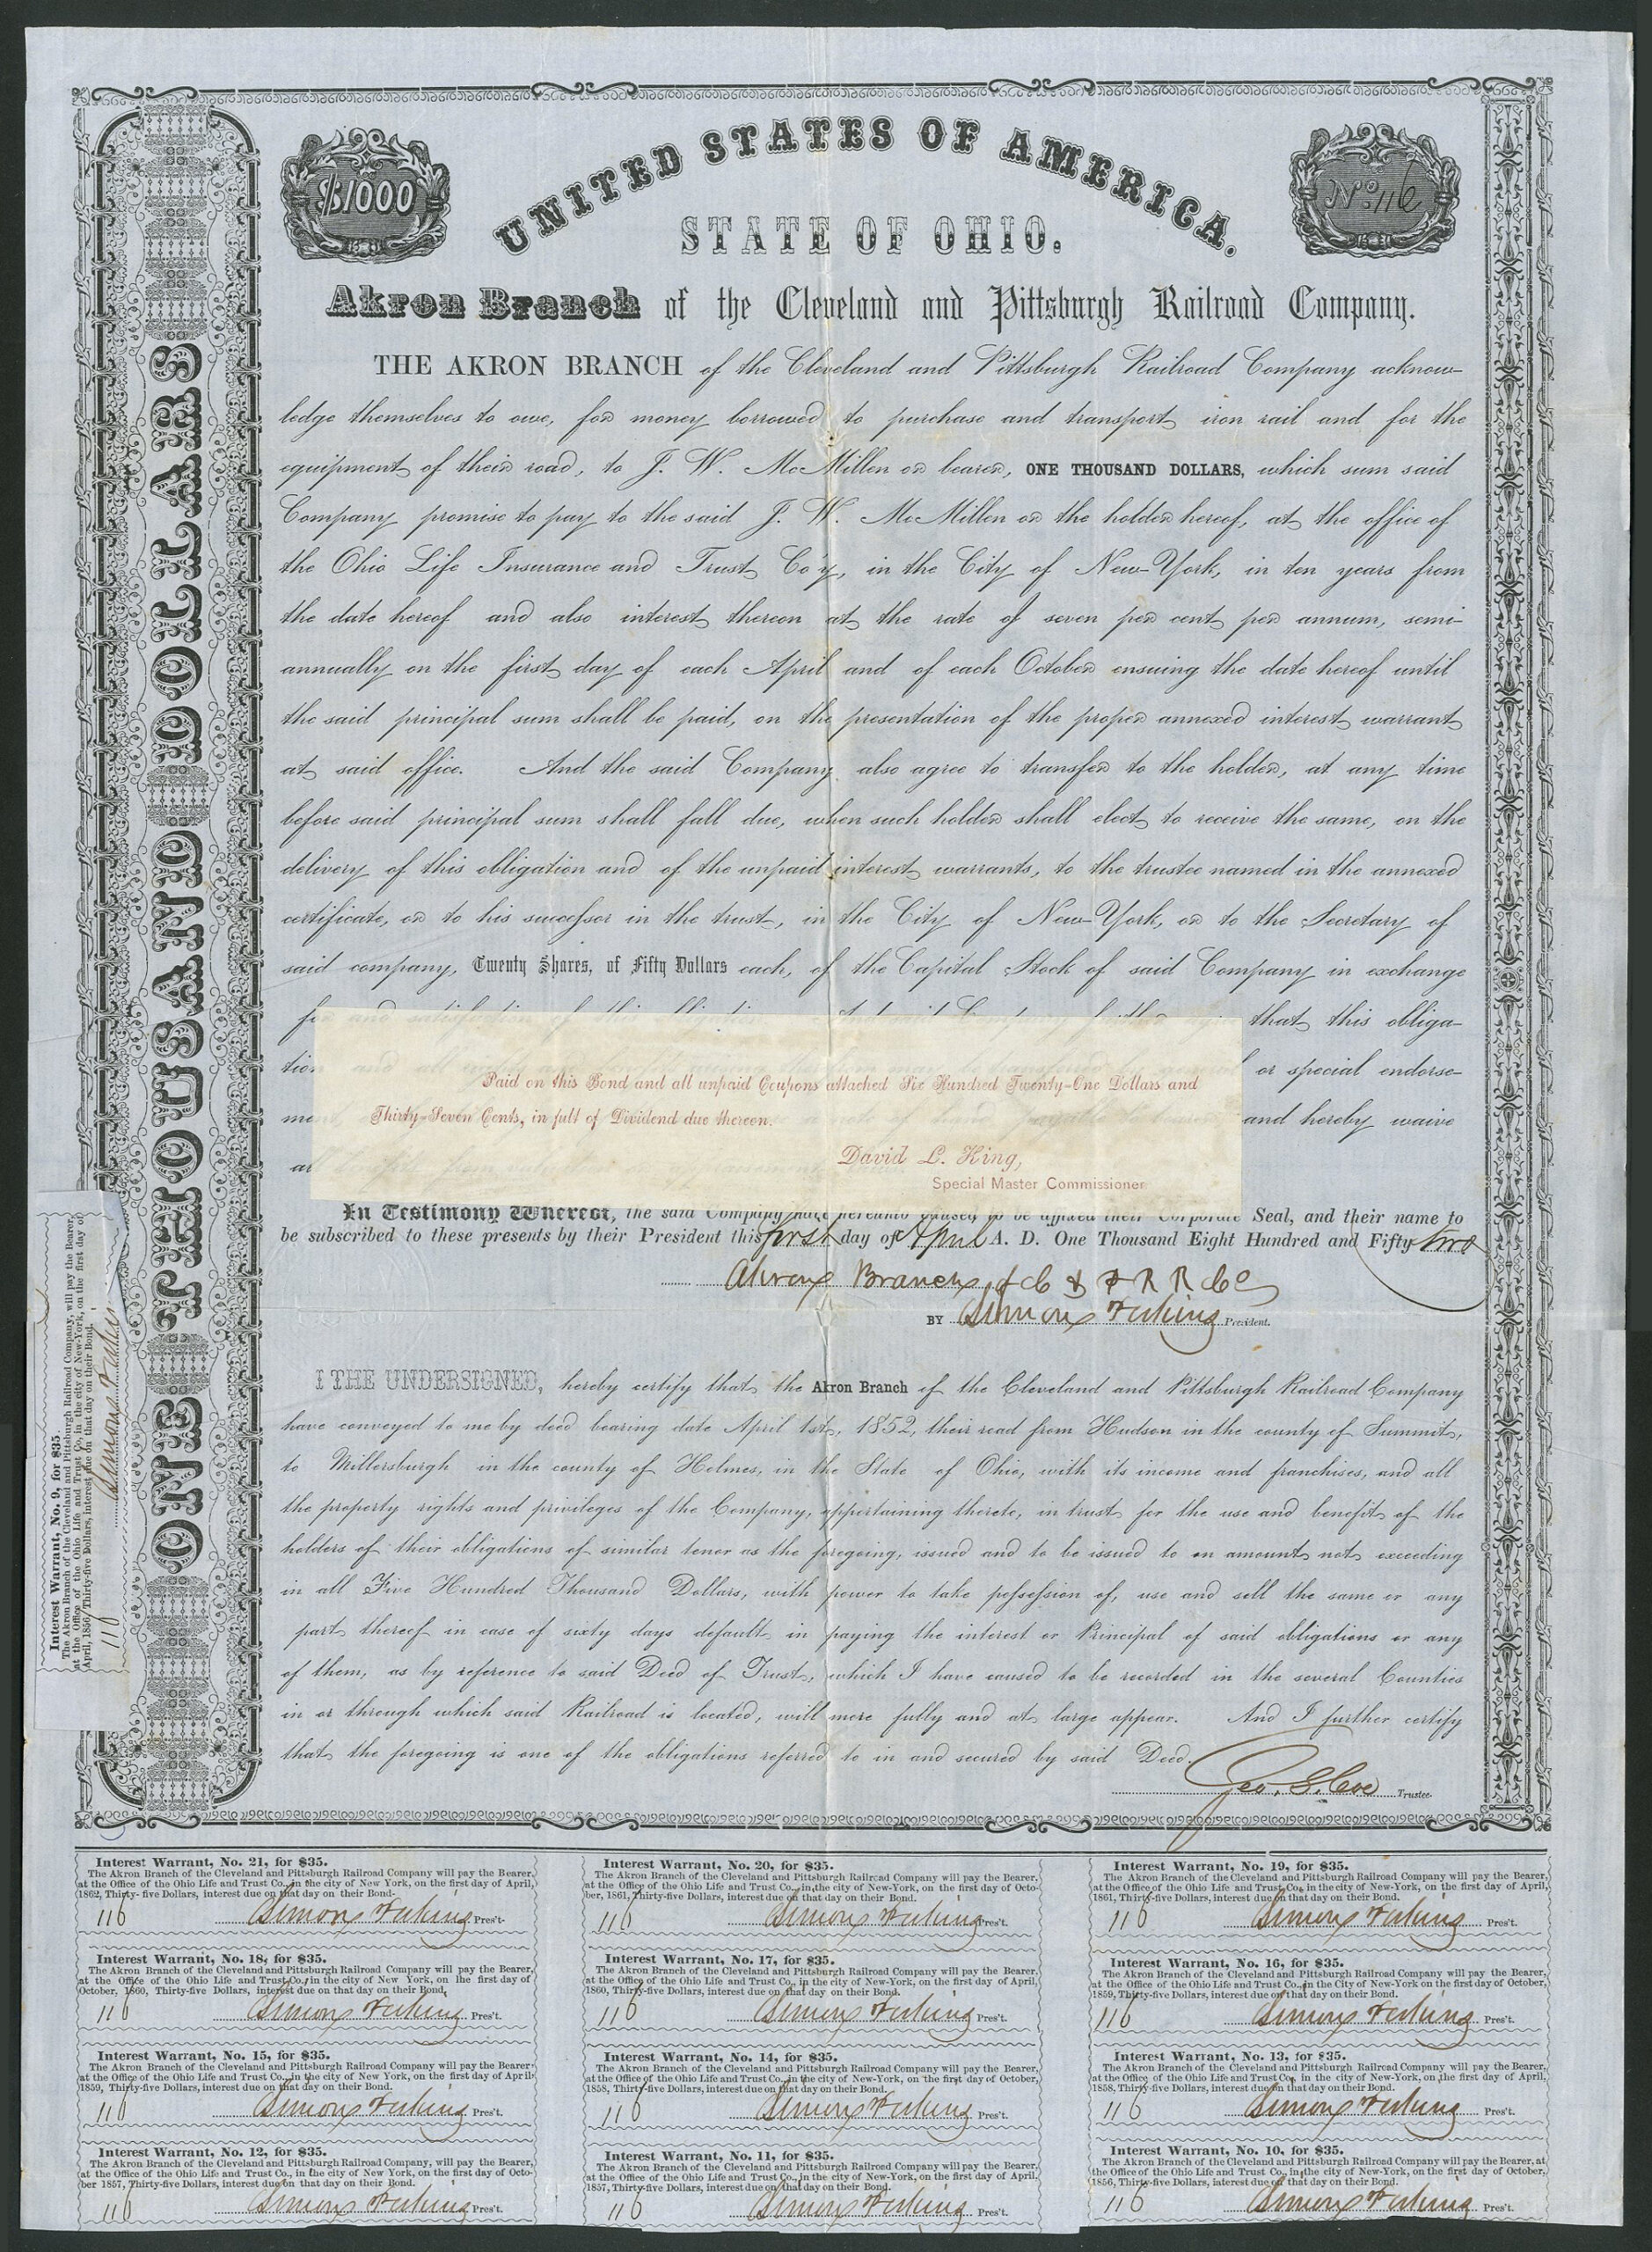 UNITED STATES OF AMERICA.
$1000
No. 116
STATE OF OHIO.
Akron Branch of the Cleveland and Pittsburgh Railroad Company.
ONE THOUSAND DOLLARS
THE AKRON BRANCH of the Cleveland and Pittsburgh Railroad Company acknow-
ledge themselves to owe, for money borrowed to purchase and transport iron rail and for the
equipment of their road, to J. W. McMillen or bearer, ONE THOUSAND DOLLARS, which sum said
Company promise to pay to the said J. W. McMillen or the holder hereof, at the office of
the Ohio Life Insurance and Trust Co'y, in the City of New-York, in ten years from
the date hereof and also interest thereon at the rate of seven per cent per annum, semi-
annually on the first day of each April and of each October ensuing the date hereof until
the said principal sum shall be paid, on the presentation of the proper annexed interest warrant
at said office. And the said Company also agree to transfer to the holder, at any time
before said principal sum shall fall due, when such holder shall elect to receive the same, on the
delivery of this obligation and of the unpaid interest warrants, to the trustee named in the annexed
certificate, or to his successor in the trust, in the City of New-York, or to the Secretary of
said company, Twenty Shares, of Fifty Dollars each, of the Capital Stock of said Company in exchange
that this obliga-
tion
or special endorse-
and hereby waive
Paid on this Bond and all unpaid Coupons attached Six Hundred Twenty-One Dollars and
Thirty-Seven Cents, in full of Dividend due thereon.
David L. King,
Special Master Commissioner
In Testimony Whereof, the said Company have hereunto caused to be affixed their Corporate Seal, and their name to
be subscribed to these presents by their President this first day of April A. D. One Thousand Eight Hundred and Fifty two
Akron Branch of C & P R R Co
BY Simon Perkins President.
I THE UNDERSIGNED, hereby certify that the Akron Branch of the Cleveland and Pittsburgh Railroad Company
have conveyed to me by deed bearing date April 1st, 1852, their road from Hudson in the county of Summit,
to Millersburgh in the county of Holmes, in the State of Ohio, with its income and franchises, and all
the property rights and privileges of the Company, appertaining thereto, in trust for the use and benefit of the
holders of their obligations of similar tenor as the foregoing, issued and to be issued to an amount not exceeding
in all Five Hundred Thousand Dollars, with power to take possession of, use and sell the same or any
part thereof in case of sixty days default in paying the interest or Principal of said obligations or any
of them, as by reference to said Deed of Trust, which I have caused to be recorded in the several Counties
in or through which said Railroad is located, will more fully and at large appear. And I further certify
that the foregoing is one of the obligations referred to in and secured by said Deed.
Geo. S. Coe Trustee.
Interest Warrant, No. 9, for $35.
The Akron Branch of the Cleveland and Pittsburgh Railroad Company, will pay the Bearer,
at the Office of the Ohio Life and Trust Co, in the city of New-York, on the first day of
April, 1856, Thirty-five Dollars, interest due on that day on their Bond.
116 Simon Perkins
Interest Warrant, No. 21, for $35.
The Akron Branch of the Cleveland and Pittsburgh Railroad Company will pay the Bearer,
at the Office of the Ohio Life and Trust Co., in the city of New York, on the first day of April,
1862, Thirty-five Dollars, interest due on that day on their Bond.
116 Simon Perkins Pres't.
Interest Warrant, No. 20, for $35.
The Akron Branch of the Cleveland and Pittsburgh Railroad Company will pay the Bearer,
at the Office of the Ohio Life and Trust Co., in the city of New-York, on the first day of Octo-
ber, 1861, Thirty-five Dollars, interest due on that day on their Bond.
116 Simon Perkins Pres't.
Interest Warrant, No. 19, for $35.
The Akron Branch of the Cleveland and Pittsburgh Railroad Company will pay the Bearer,
at the Office of the Ohio Life and Trust Co., in the city of New-York, on the first day of April,
1861, Thirty-five Dollars, interest due on that day on their Bond.
116 Simon Perkins Pres't.
Interest Warrant, No. 18, for $35.
The Akron Branch of the Cleveland and Pittsburgh Railroad Company will pay the Bearer,
at the Office of the Ohio Life and Trust Co., in the city of New York, on the first day of
October, 1860, Thirty-five Dollars, interest due on that day on their Bond.
116 Simon Perkins Pres't.
Interest Warrant, No. 17, for $35.
The Akron Branch of the Cleveland and Pittsburgh Railroad Company will pay the Bearer,
at the Office of the Ohio Life and Trust Co., in the city of New-York, on the first day of April,
1860, Thirty-five Dollars, interest due on that day on their Bond.
116 Simon Perkins Pres't.
Interest Warrant, No. 16, for $35.
The Akron Branch of the Cleveland and Pittsburgh Railroad Company will pay the Bearer,
at the Office of the Ohio Life and Trust Co., in the City of New-York on the first day of October,
1859, Thirty-five Dollars, interest due on that day on their Bond.
116 Simon Perkins Pres't.
Interest Warrant, No. 15, for $35.
The Akron Branch of the Cleveland and Pittsburgh Railroad Company will pay the Bearer
at the Office of the Ohio Life and Trust Co., in the city of New York, on the first day of April
1859, Thirty-five Dollars, interest due on that day on their Bond.
116 Simon Perkins Pres't.
Interest Warrant, No. 14, for $35.
The Akron Branch of the Cleveland and Pittsburgh Railroad Company will pay the Bearer,
at the Office of the Ohio Life and Trust Co., in the city of New-York, on the first day of October,
1858, Thirty-five Dollars, interest due on that day on their Bond.
116 Simon Perkins Pres't.
Interest Warrant, No. 13, for $35.
The Akron Branch of the Cleveland and Pittsburgh Railroad Company will pay the Bearer,
at the Office of the Ohio Life and Trust Co., in the city of New-York, on the first day of April,
1858, Thirty-five Dollars, interest due on that day on their Bond.
116 Simon Perkins Pres't.
Interest Warrant, No. 12, for $35.
The Akron Branch of the Cleveland and Pittsburgh Railroad Company, will pay the Bearer,
at the Office of the Ohio Life and Trust Co., in the city of New York, on the first day of Octo-
ber 1857, Thirty-five Dollars, interest due on that day on their Bond.
116 Simon Perkins Pres't.
Interest Warrant, No. 11, for $35.
The Akron Branch of the Cleveland and Pittsburgh Railroad Company, will pay the Bearer,
at the Office of the Ohio Life and Trust Co., in the city of New-York, on the first day of April,
1857, Thirty-five Dollars, interest due on that day on their Bond.
116 Simon Perkins Pres't.
Interest Warrant, No. 10, for $35.
The Akron Branch of the Cleveland and Pittsburgh Railroad Company, will pay the Bearer, at
the Office of the Ohio Life and Trust Co., in the city of New-York, on the first day of October,
1856, Thirty-five Dollars, interest due on that day on their Bond.
116 Simon Perkins Pres't.